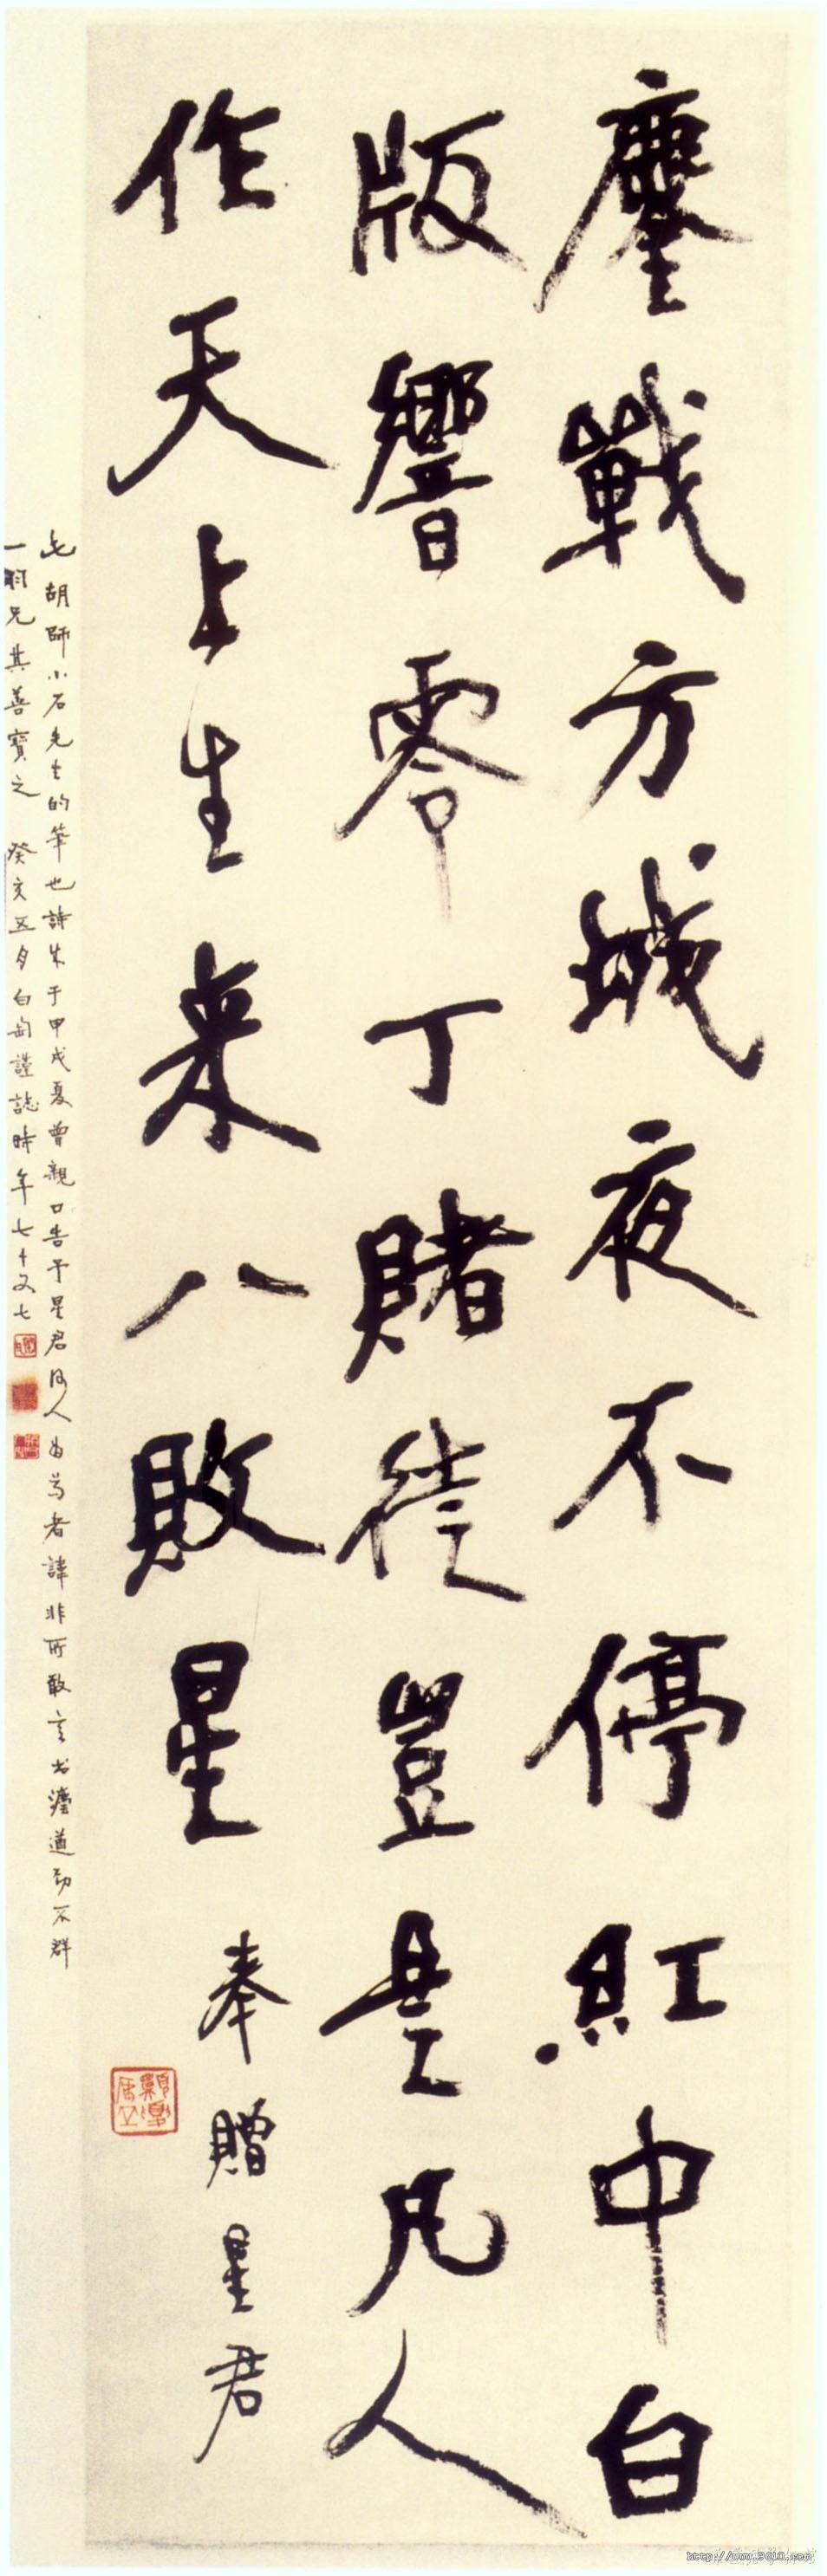 鏖戰方城夜不停紅中白
版響零丁賭徒豈是凡人
作天上生來八敗星
奉贈星君
此胡師小石先生的筆也詩朱于甲戌夏曾親口告予星君何人為尊者諱非所敢言書法遒勁不群
一羽兄其善寶之 癸亥五月白匋謹誌時年七十又七
http://www.9610.com